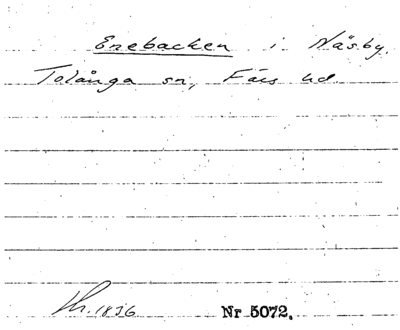 Enebacken i Näsby.
Tolånga sn, Färs hd.
1836. Nr 5072.